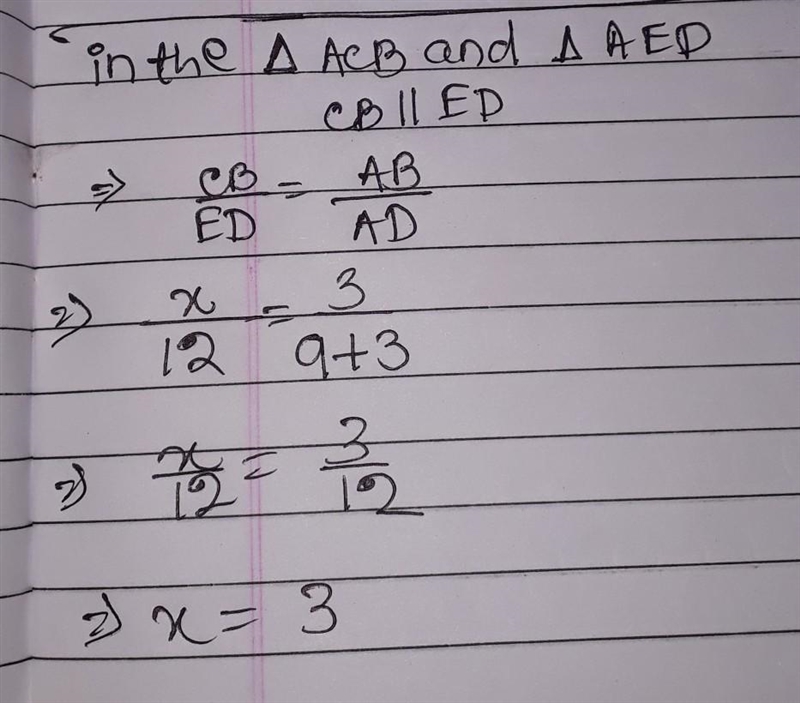 in the Δ ACB and Δ AED
CB || ED
⇒ CB/ED = AB/AD
⇒ x/12 = 3/9+3
⇒ x/12 = 3/12
⇒ x = 3